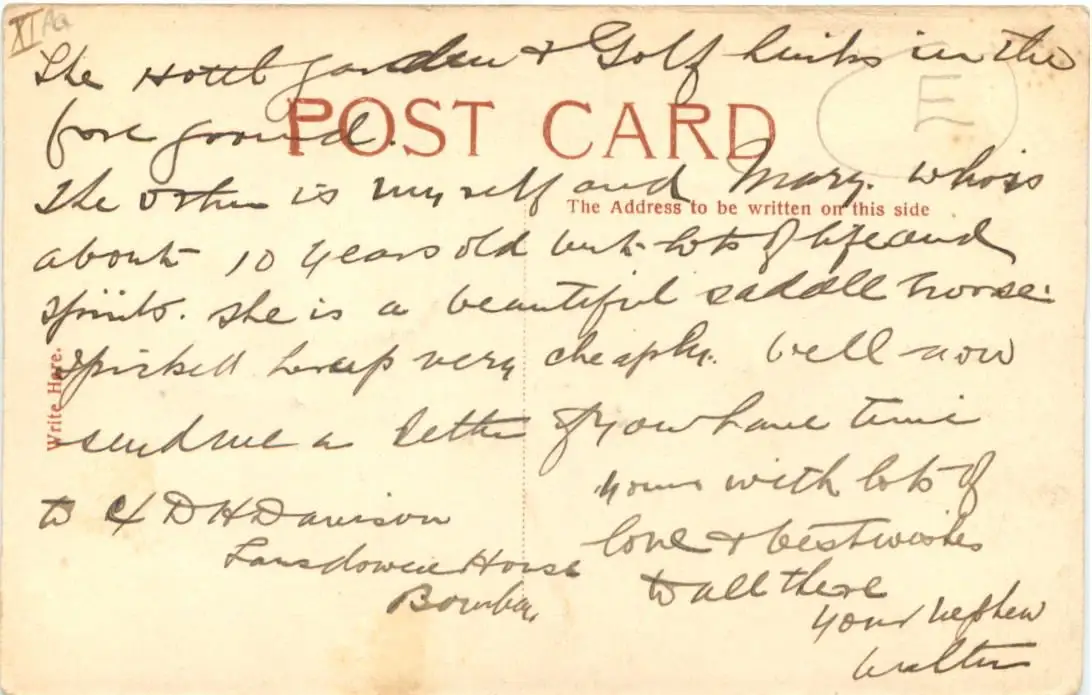 XI Aa
The Hotel garden & Golf links in the
E
fore ground.
POST CARD
The other is myself and Mary. who is
The Address to be written on this side
about 10 years old but lots of life and
spirits. She is a beautiful saddle horse.
Write Here.
very cheaply. Well now
send me a letter if you have time
yours with lots of
love & best wishes
to all there
your nephew
Walter
to D H Davison
Lansdowne House
Bombay